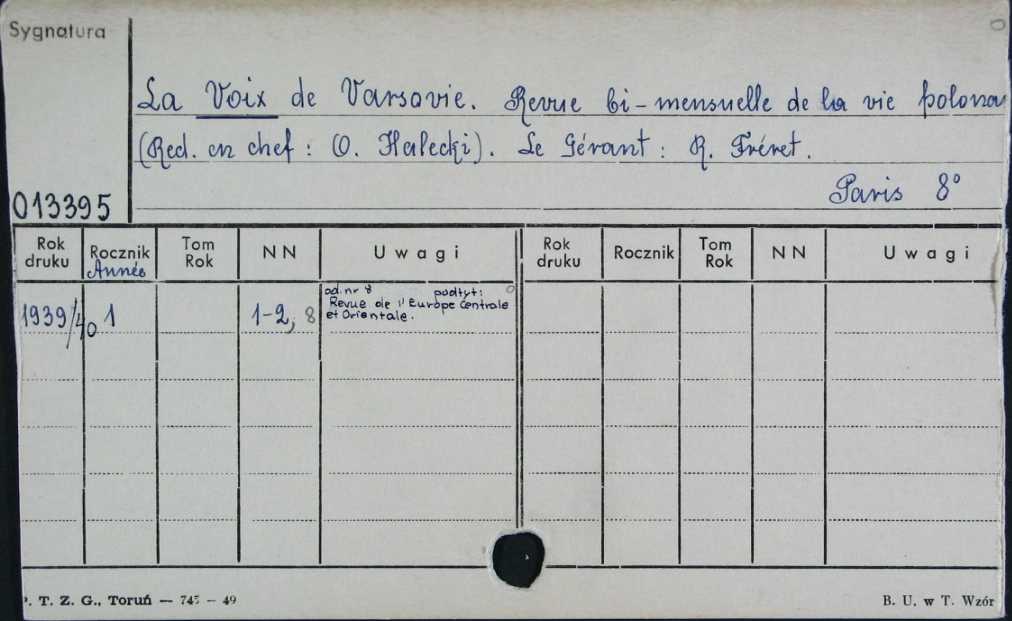 Sygnatura
La Voix de Varsovie. Revue bi-mensuelle de la vie polona
(Red. en chef: O. Halecki). Le Gérant: R. Fréret.
Paris 8°
013395
Rok druku Rocznik Tom Rok NN Uwagi Rok druku Rocznik Tom Rok NN Uwagi
Année
od nr 8 podtyt:
1939/40 1 1-2, 8 Revue de l'Europe Centrale
et Orientale.
P. T. Z. G., Toruń — 745 — 49 B. U. w T. Wzór